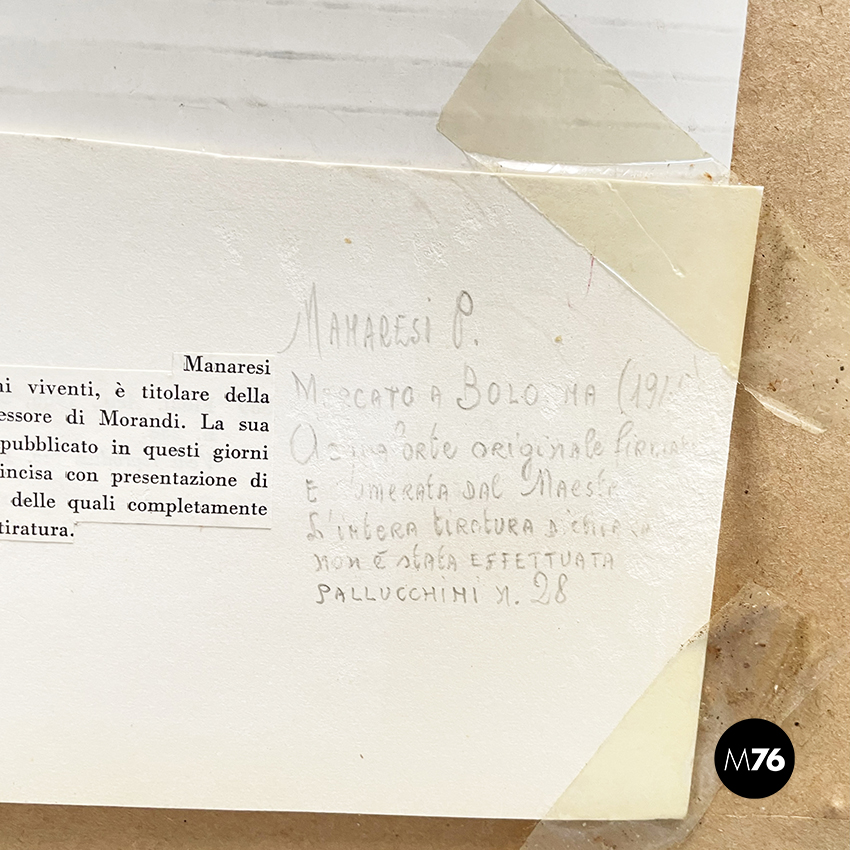 Manaresi
ni viventi, è titolare della
essore di Morandi. La sua
pubblicato in questi giorni
incisa con presentazione di
delle quali completamente
tiratura.
MANARESI P.
MERCATO A BOLOGNA
ORIGINALE
DAL MAEST
L'INTERA TIRATURA
NON È STATA EFFETTUATA
PALLUCCHINI N. 28
M76